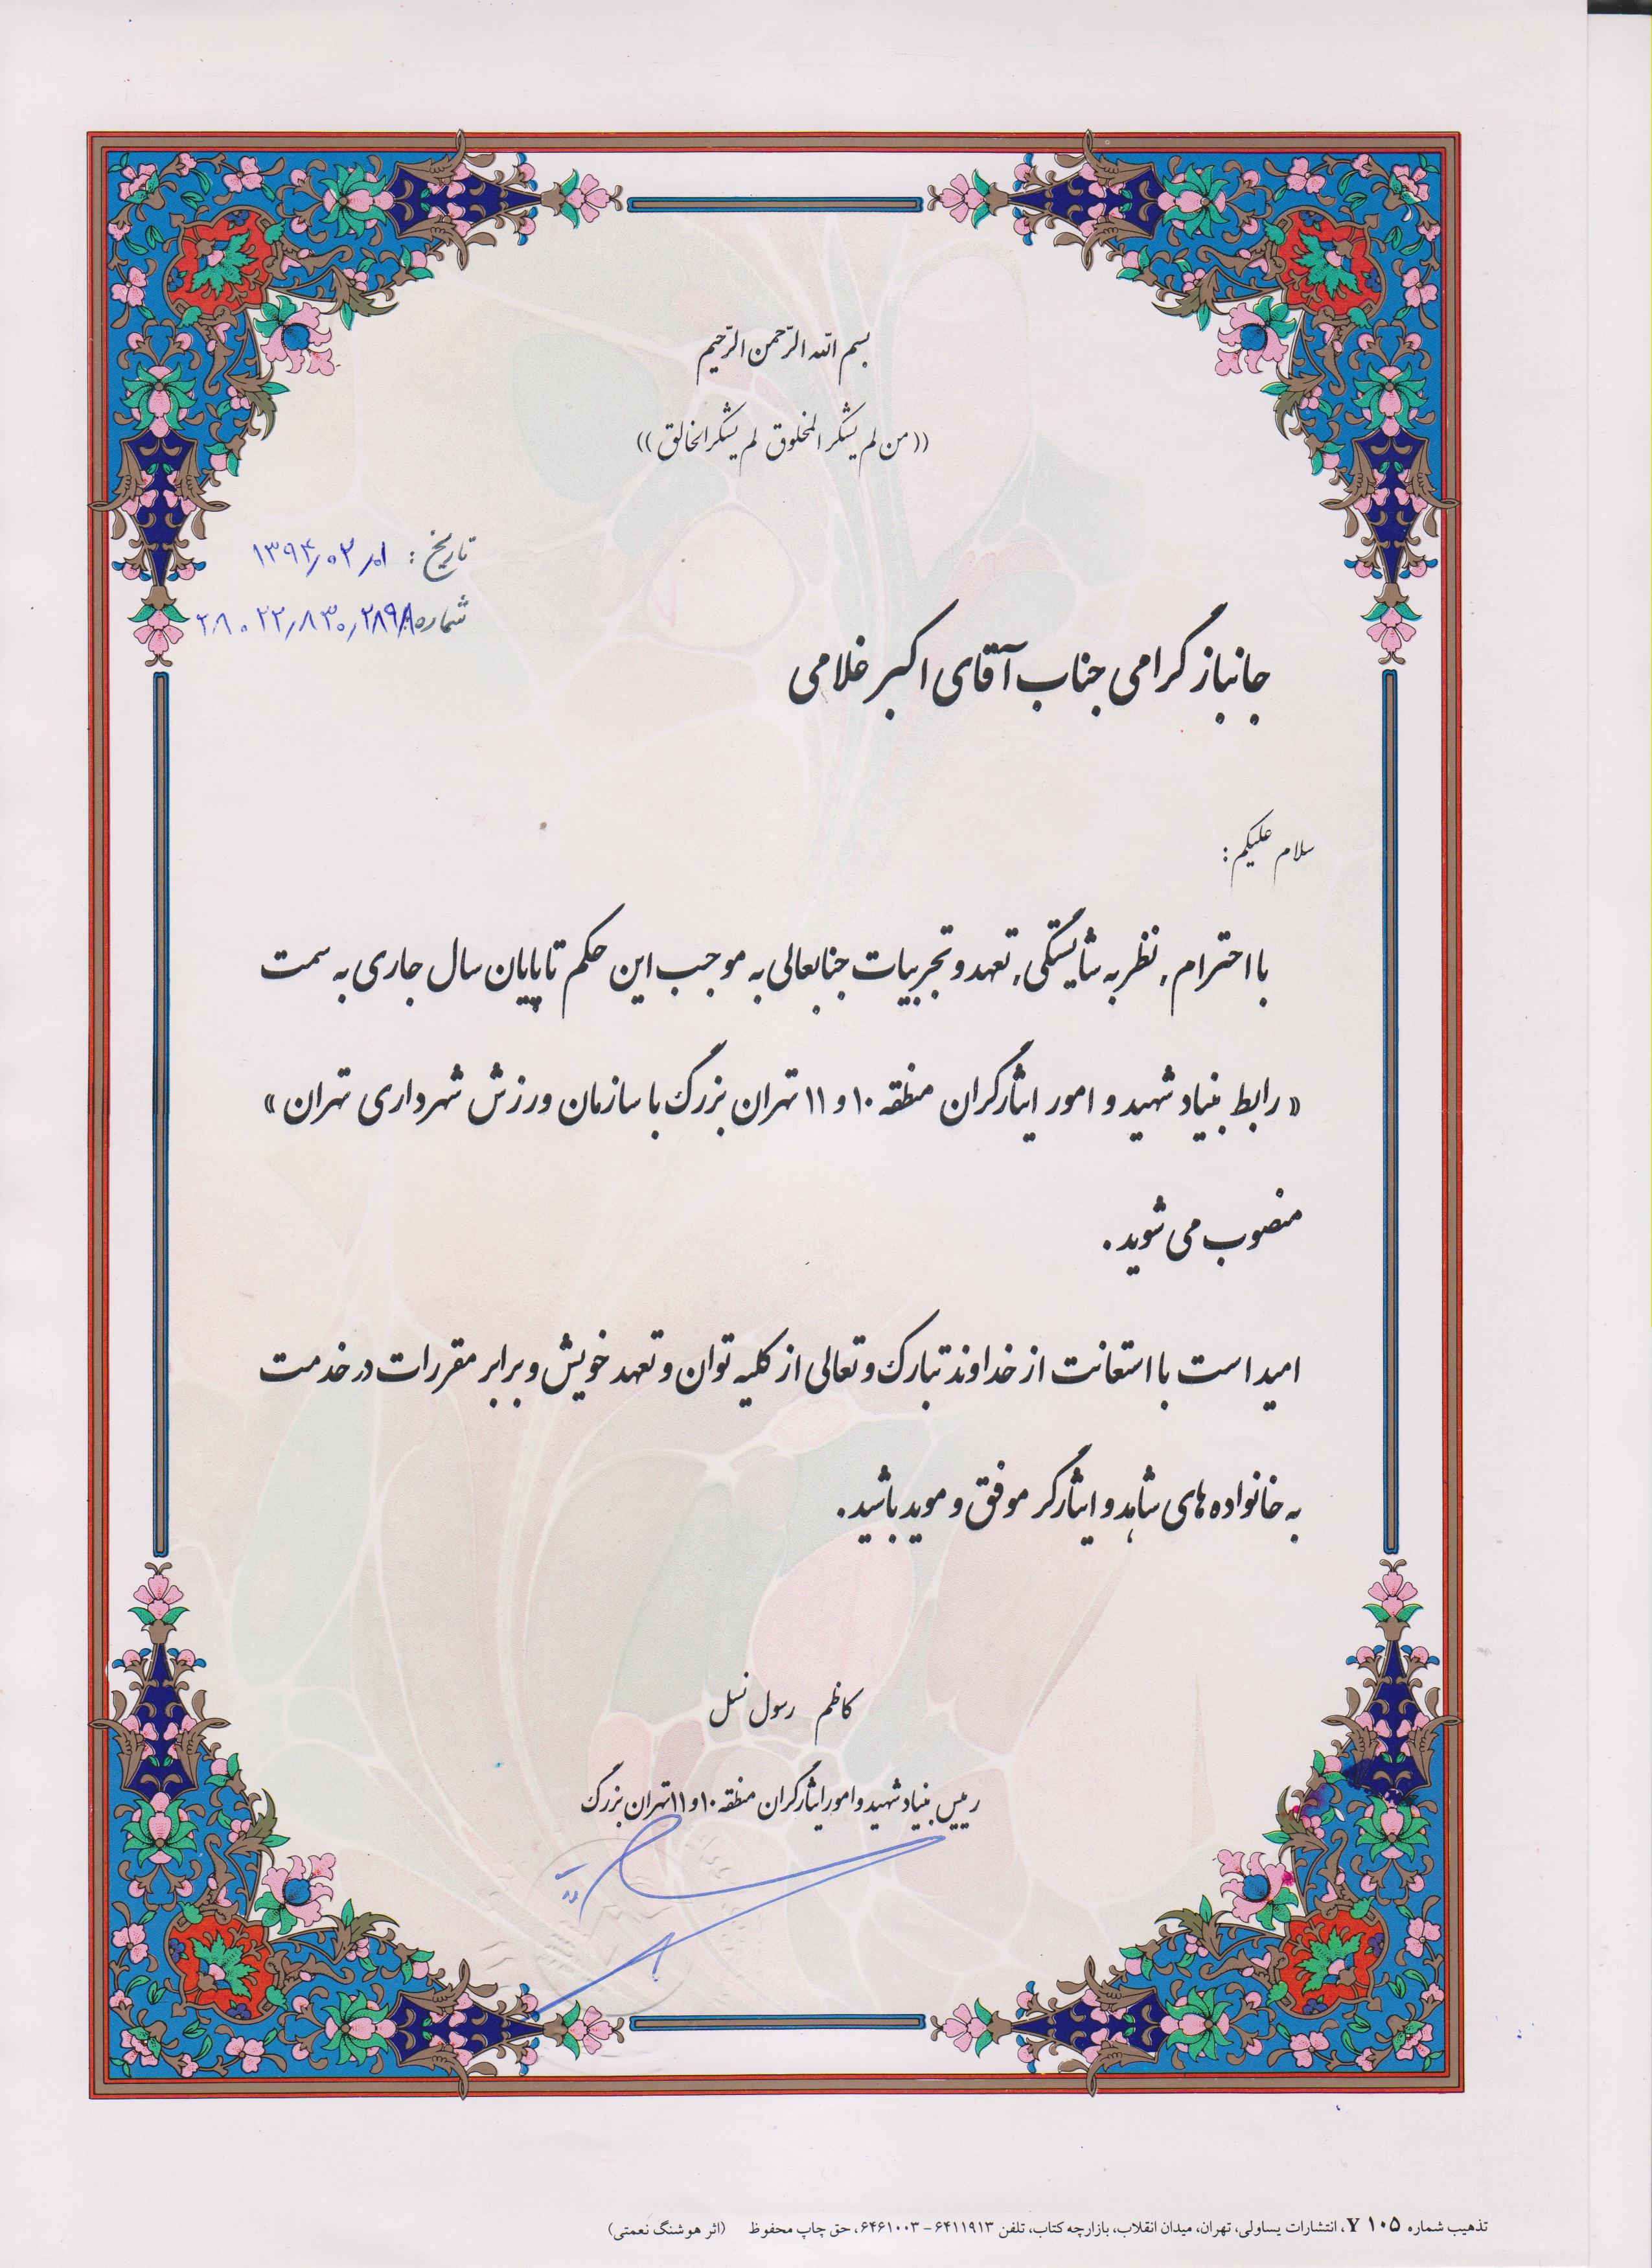 بسم الله الرّحمن الرّحیم
((من لم یشکر المخلوق لم یشکر الخالق))
تاریخ: ۱۳۹۴٫۰۲٫۰۱
شماره
جانباز گرامی جناب آقای اکبر غلامی
سلام علیکم:
با احترام, نظر به شایستگی, تعهد و تجربیات جنابعالی به موجب این حکم تا پایان سال جاری به سمت
« رابط بنیاد شهید و امور ایثارگران منطقه ۱۰ و ۱۱ تهران بزرگ با سازمان ورزش شهرداری تهران »
منصوب می شوید.
امید است با استعانت از خداوند تبارک و تعالی از کلیه توان و تعهد خویش و برابر مقررات در خدمت
به خانواده های شاهد و ایثارگر موفق و موید باشید.
کاظم رسول نسل
رییس بنیاد شهید و امور ایثارگران منطقه ۱۰ و ۱۱ تهران بزرگ
تذهیب شماره Y ۱۰۵، انتشارات یساولی، تهران، میدان انقلاب، بازارچه کتاب، تلفن ۶۴۱۱۹۱۳ - ۶۴۶۱۰۰۳، حق چاپ محفوظ (اثر هوشنگ نعمتی)